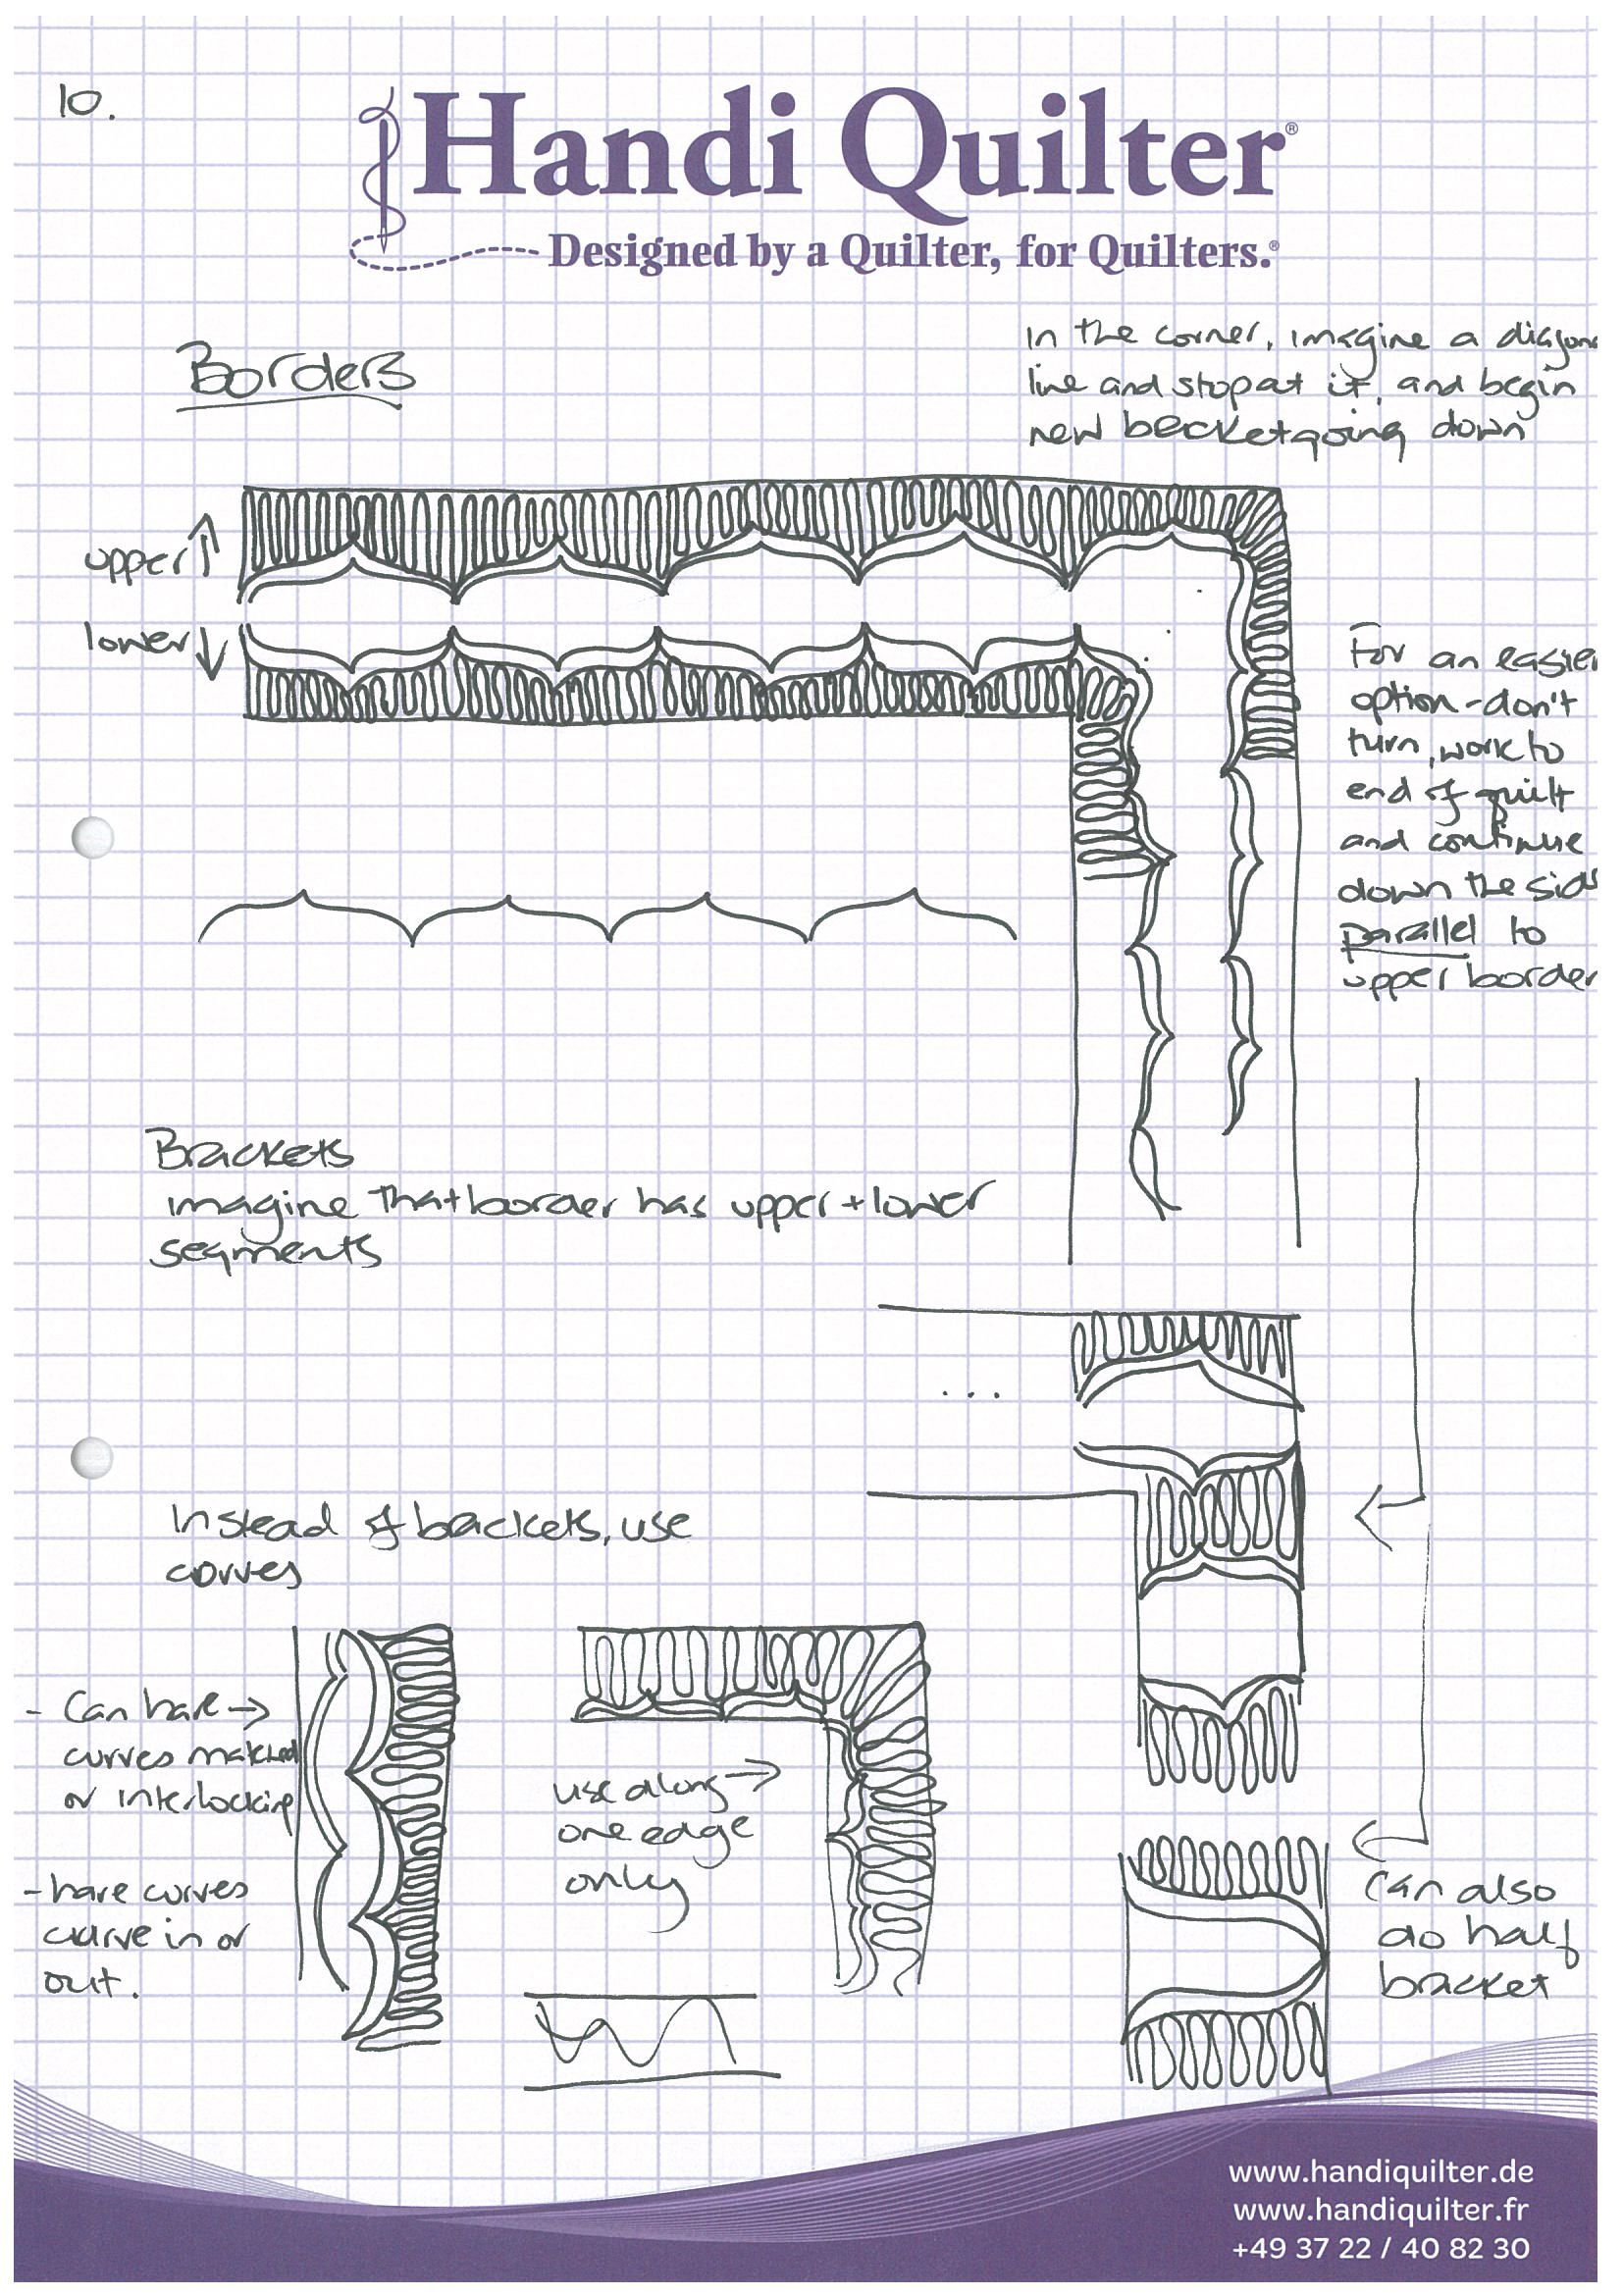 10.
Handi Quilter®
Designed by a Quilter, for Quilters.®
Borders
In the corner, imagine a diagon
line and stop at it, and begin
new backet going down
upper ↑
lower ↓
For an easier
option - don't
turn, work to
end of quilt
and continue
down the sid
parallel to
upper border
Brackets
imagine that border has upper + lower
segments
...
Instead of brackets, use
corves
- Can have →
curves matched
or interlocking
- have curves
curve in or
out.
use along →
one edge
only
Can also
do half
bracket
www.handiquilter.de
www.handiquilter.fr
+49 37 22 / 40 82 30